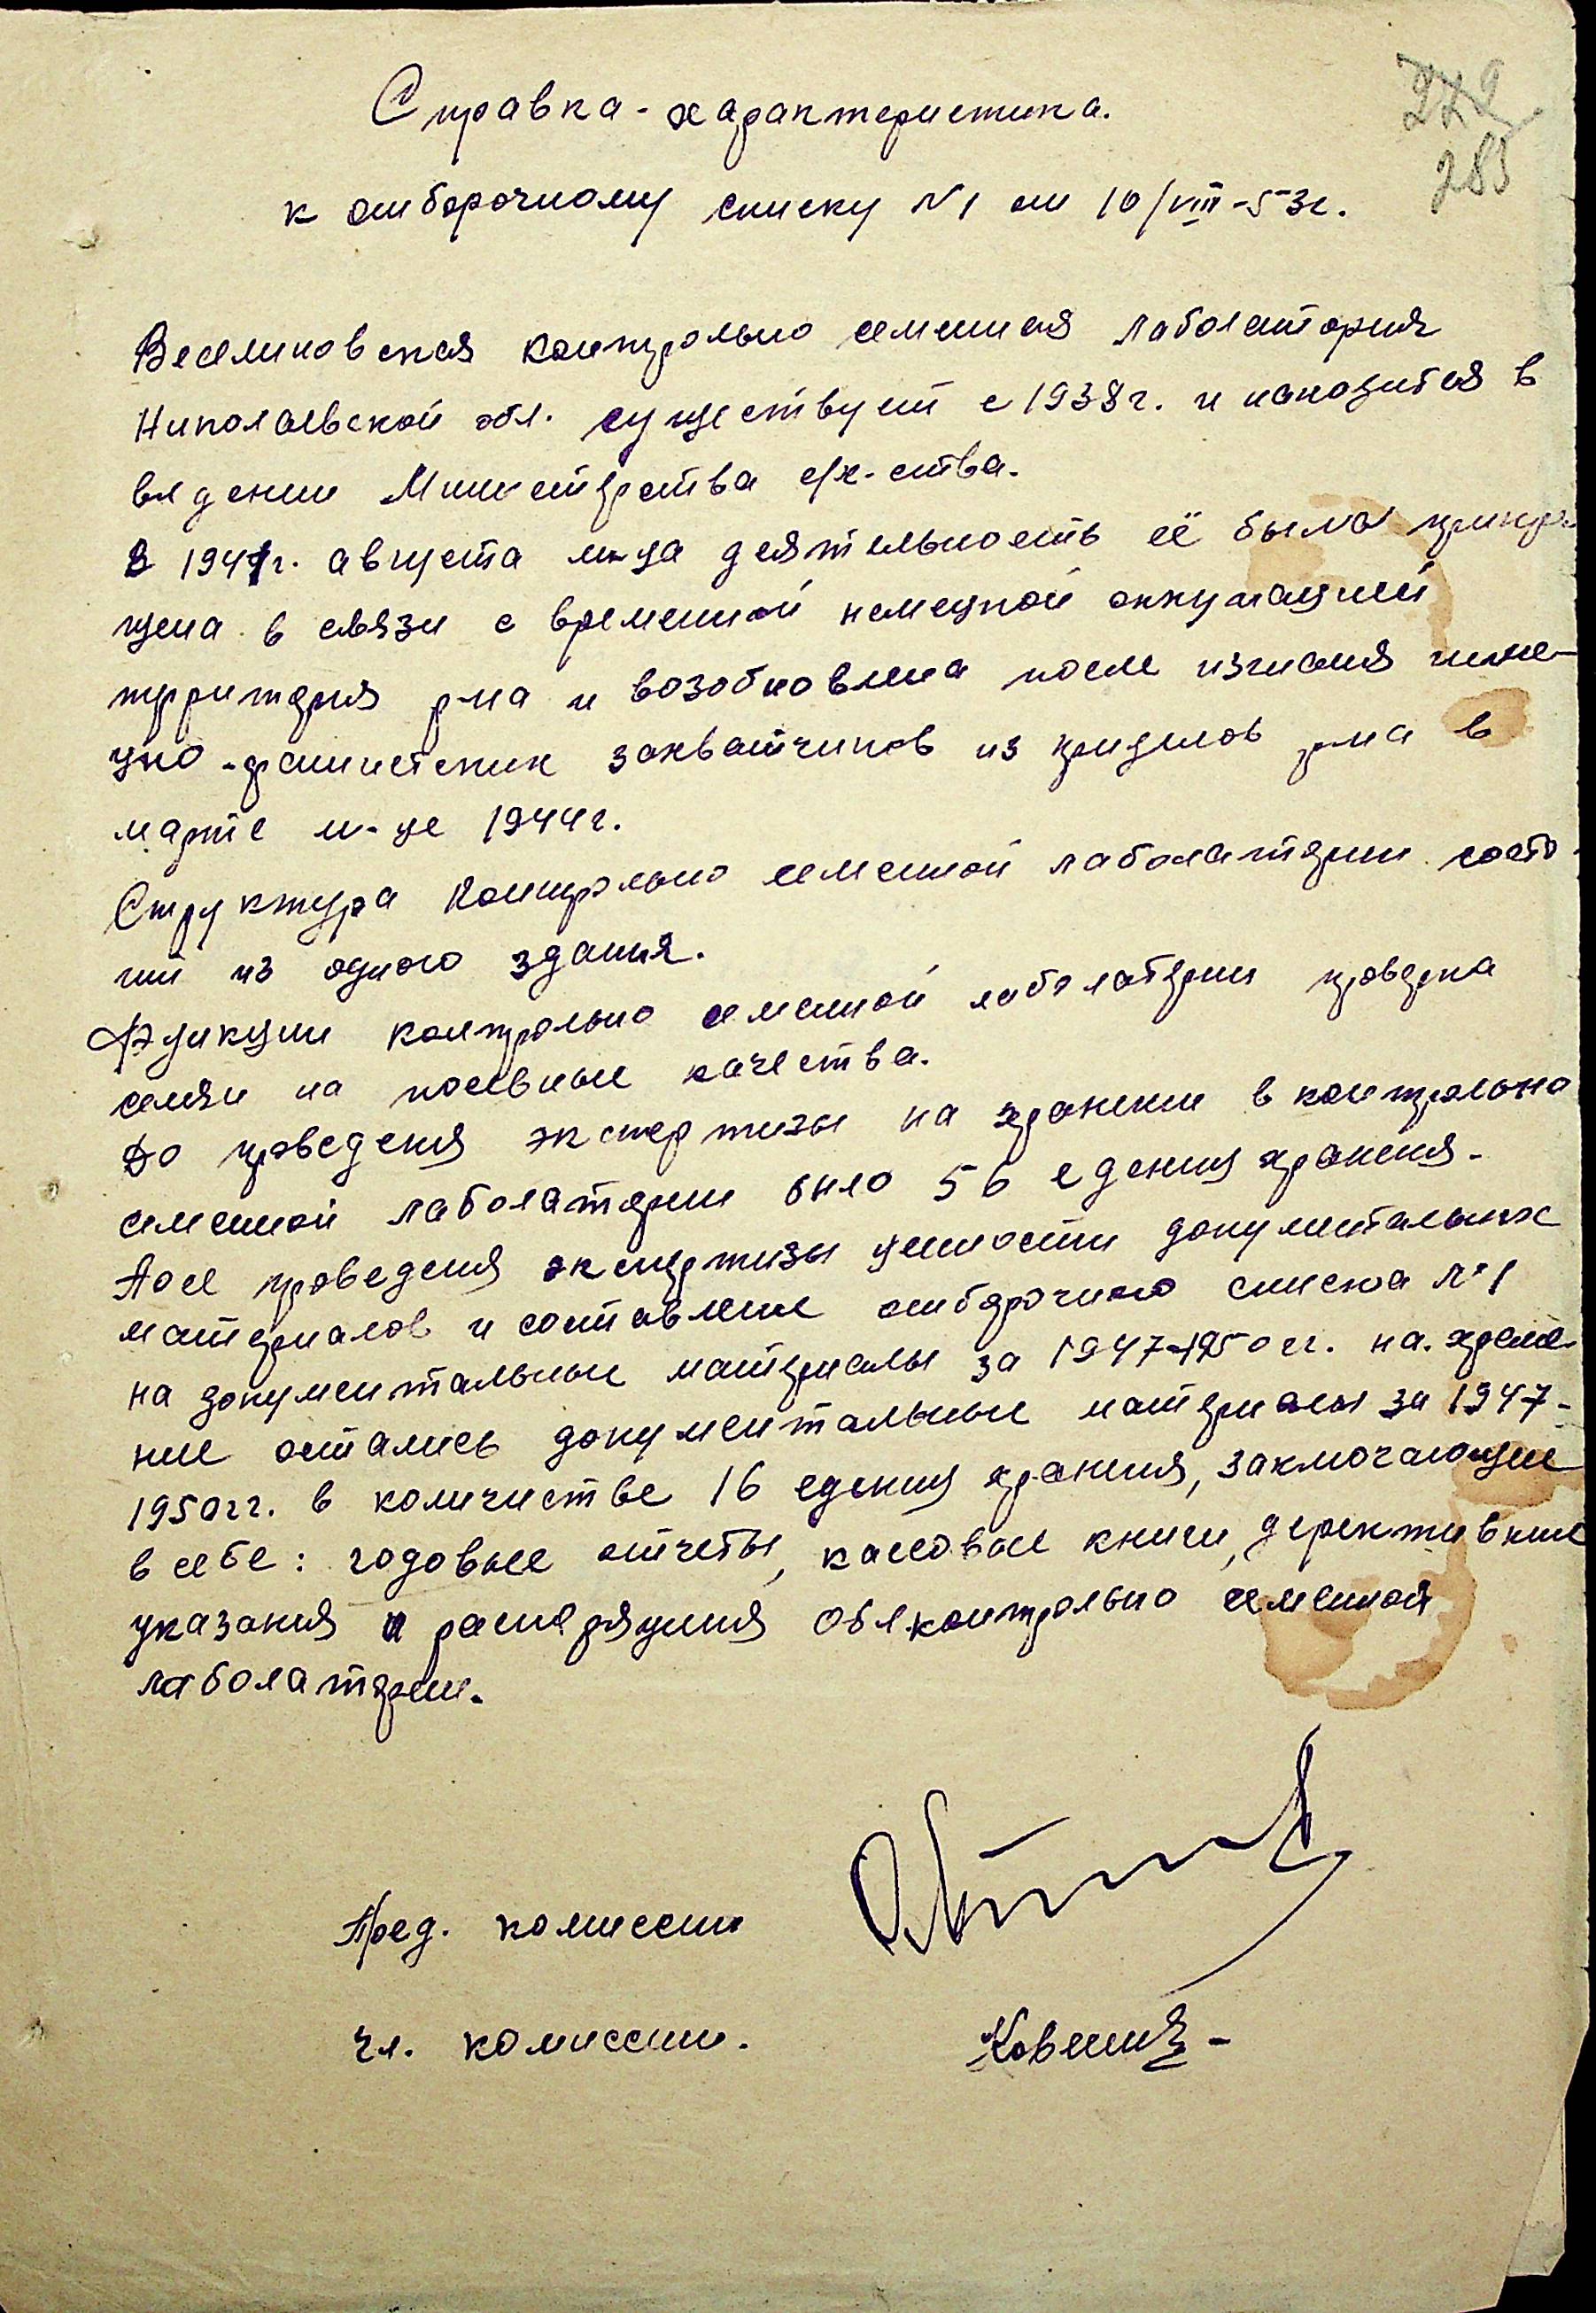 272
285
Справка-характеристика.
к отборочному списку №1 от 10/VIII-53г.
Веселиновская контрольно семеная лаболатория
Николаевской обл. существует с 1938г. и находится в
ведении Министерства с/х-ства.
В 1941г. августа м-ца деятельность её была прикра-
щена в связи с временной немецкой оккупацией
территория р-на и возобновлена после изгнания неме-
цко-фашистских захватчиков из пределов р-на в
марте м-це 1944г.
Структура контрольно семенной лаболатории состо-
ит из одного здания.
Фуикции контрольно семенной лаболатории проверка
семян на посевные качества.
До проведения экспертизы на хранении в контрольно
семенной лаболатории было 56 едениц хранения.
Посе проведения экспертизы ценности документальных
материалов и составление отборочного списка №1
на документальные материалы за 1947-1950 гг. на хране-
ние остались документальные материалы за 1947-
1950гг. в количистве 16 едениц хранения, заключающие
в себе: годовые отчеты, кассовые книги, дерективные
указания и распоряжения Обл.контрольно семенной
лаболатории.
Пред. комиссии
Чл. комиссии.